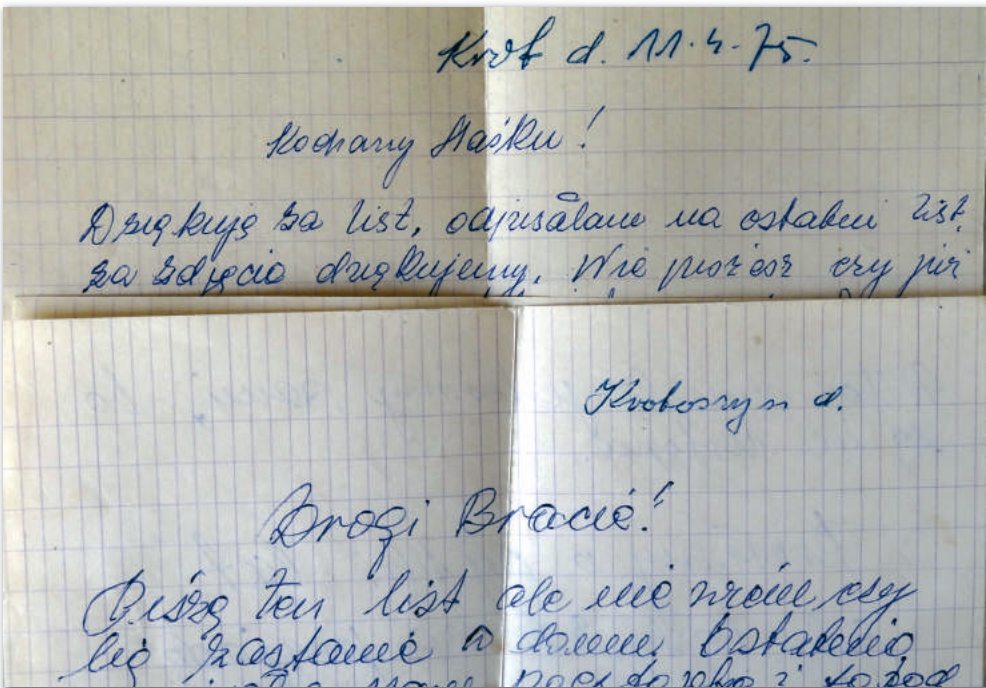 Krot d. 11.4.75.
Kochany Staśku!
Dziękuję za list, odpisałam na ostatni list,
za zdjęcia dziękujemy. Nie piszesz czy już
Krotoszyn d.
Drogi Bracie!
Piszę ten list ale nie wiem czy
Cię zastanie w domu. Ostatnio